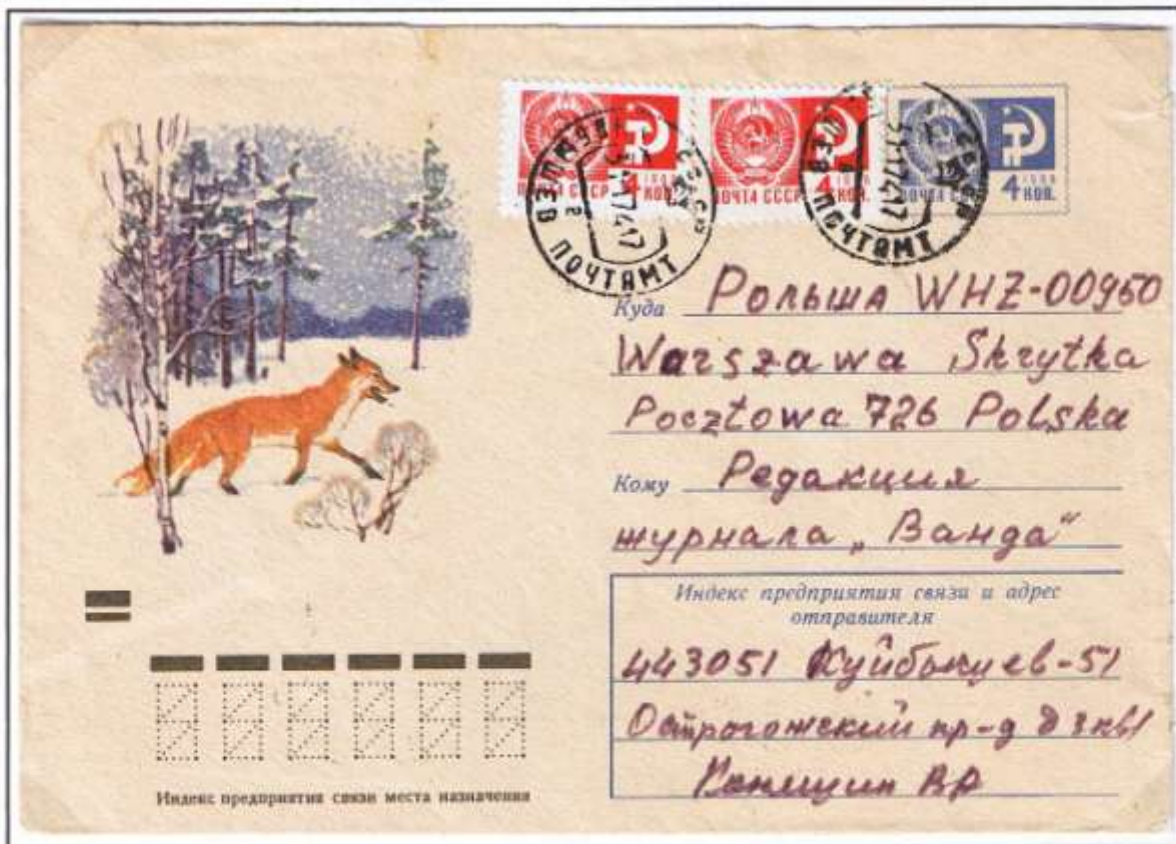 ПОЧТА СССР 4 1966 КОП.
ПОЧТА СССР 4 1966 КОП.
4 1966 КОП.
КУЙБЫШЕВ ПОЧТАМТ
ПОЧТАМТ
Куда Польша WHZ-00950
Warszawa Skrytka
Pocztowa 726 Polska
Кому Редакция
журнала „Ванда“
Индекс предприятия связи и адрес
отправителя
443051 Куйбышев-51
Острогожский пр-д д3 кв1
ВА
Индекс предприятия связи места назначения